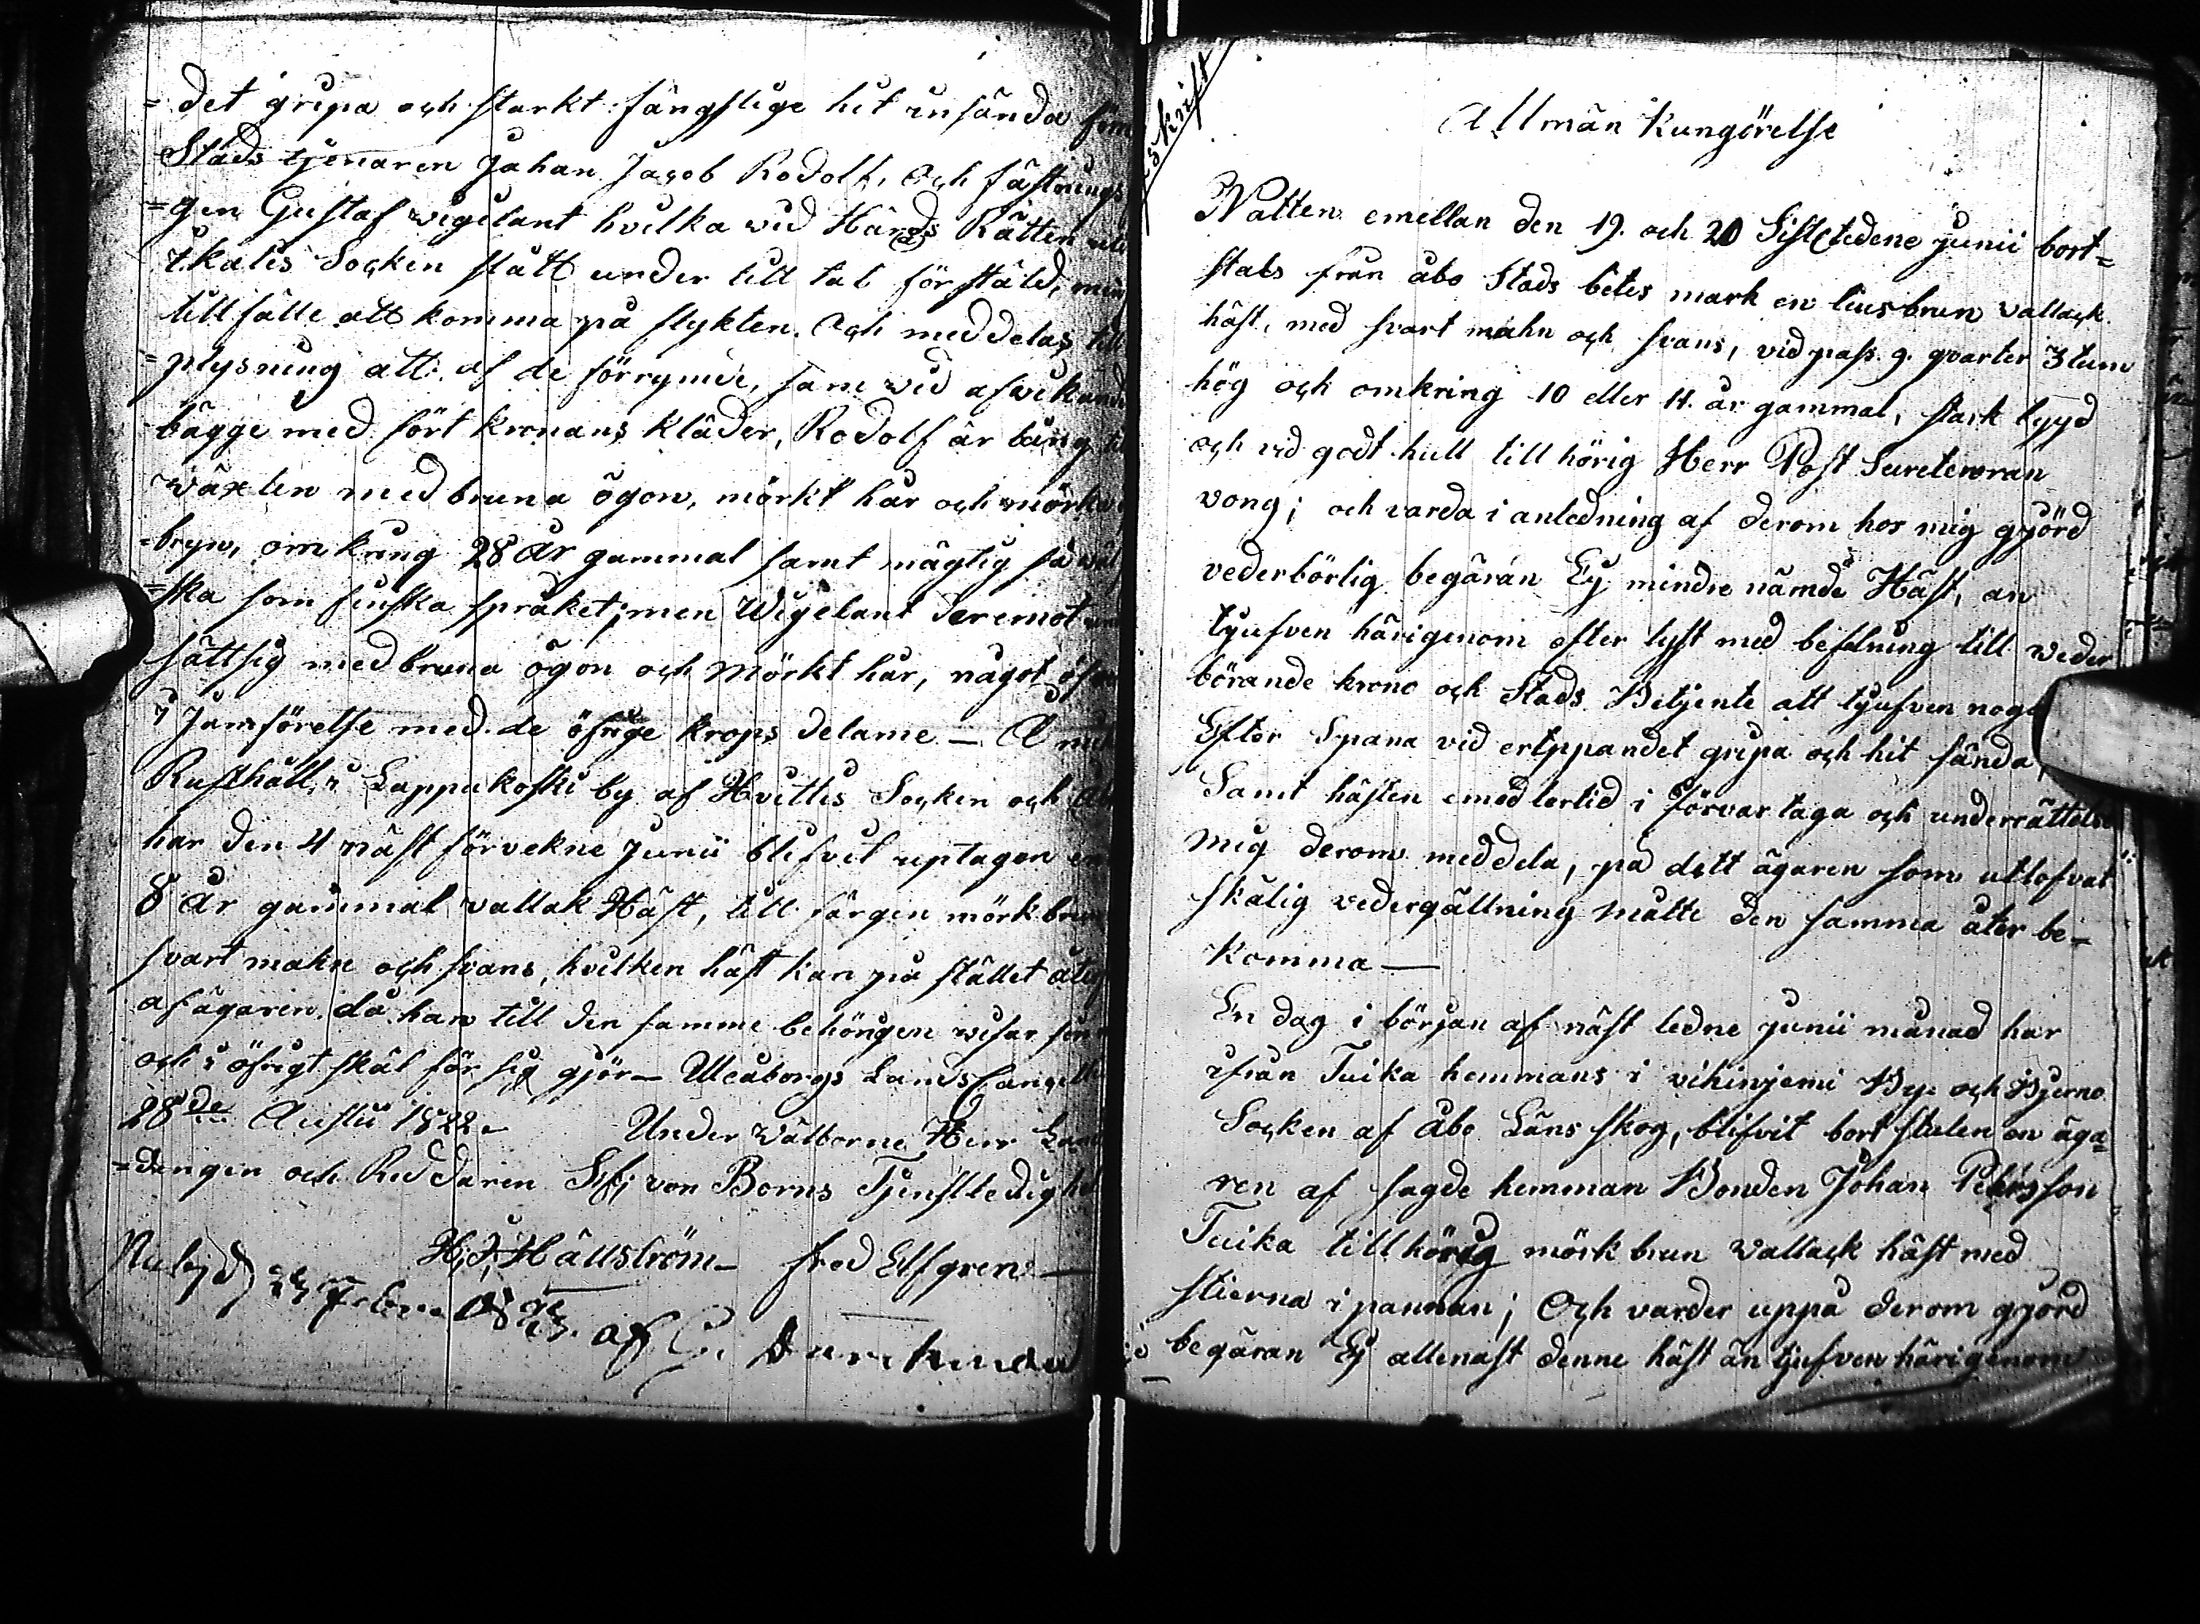 =det gripa och starkt fängslige hit insända
Stads tjenaren Johan Jacob Rodolf, och fästnings
=gen Gustaf Wigelant hvilka vid Härads Rätten
i Kalis Socken stått under till tal förstäld,
tillfälle att komma på flykten. Och meddelas till
=plysning att af de förrymde, som vid afvikande
bägge med fört kronans kläder, Rodolf är lång till
växten med bruna ögon, mörkt hår och mörka
=bryn, omkring 28 år gammal samt mägtig så väl
=ska som finska språket; men Wigelant deremot
sättsig med bruna ögon och mörkt hår, något
i Jämförelse med de öfrige krops delarne —
Rusthåll, i Lappukoski by af Hvittis Socken och
har den 4 näst förvekne Junii blifvit uptagen en
8 år gammal vallak Häst, till färgen mörkbrun
svart mahn och svans, hvilken häst kan på stället
af ägaren då han till den samme behörigen visar sin
och i öfrigt skäl för sig gjör — Uleaborgs Lands Cancellie
28de Austii 1822 Under Välborne Herr
=dingen och Riddaren von Borns Tjenstledighet
H. J. Hällström — Fred Elfgren —
af
afskrift
Allmän Kungörelse
Natten emellan den 19. och 20 Sistledene junii bort=
stals från åbo Stads betes mark en liusbrun vallack
häst, med svart mahn och svans, vid pass 9. qvarter 3 tum
hög och omkring 10 eller 11. år gammal, stark bygd
och vid godt hull till hörig Herr Post
vong; och varda i anledning af derom hos mig gjörd
vederbörlig begäran Ej mindre nämde Häst, än
tjufven härigenom efter lyst med befalning till weder
börande krono och Stads Betjente att tjufven noga
Efter Spana vid ertappandet gripa och hit sända,
Samt hästen emedlertid i förvar taga och underrättelse
mig derom meddela, på dett ägaren som utlofvat
skälig vedergällning måtte den samma åter be=
komma —
En dag i början af näst ledne junii månad har
ifrån Tuika hemmans i vihinjemi By och Bjerno
Socken af åbo Läns skog, blifvit bort stulen en äga=
ren af sagde hemman Bonden Johan Petersson
Tuika tillhörig mörk brun vallack häst med
stierna i pannan; Och varder uppå derom gjörd
begäran Ej allenast denne häst än tjufven härigenom